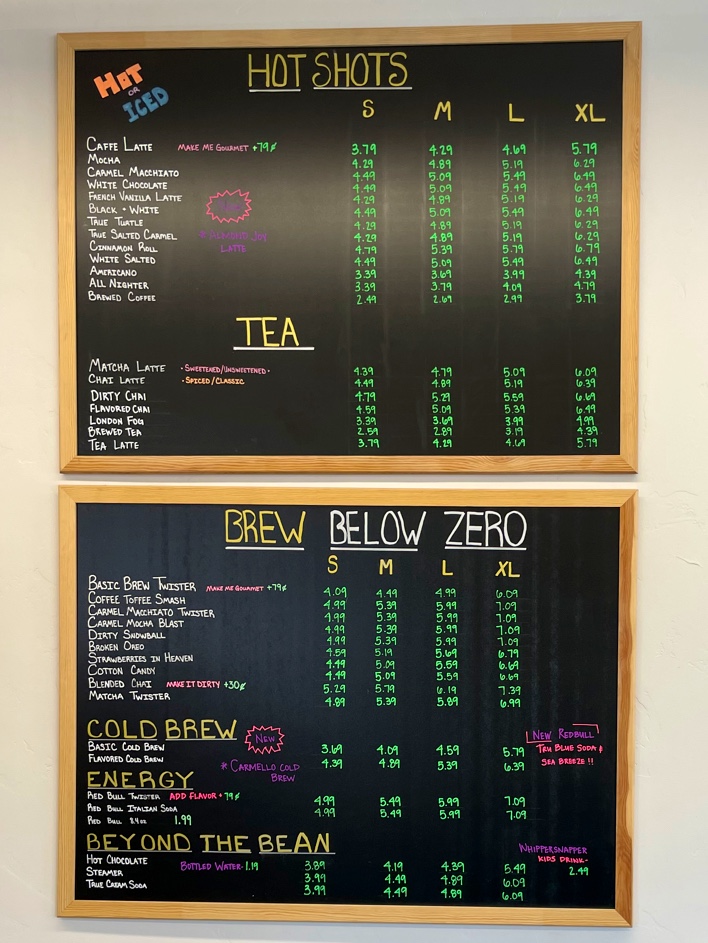 HOT OR ICED
HOT SHOTS
S M L XL
CAFFE LATTE MAKE ME GOURMET +79¢ 3.79 4.29 4.69 5.79
MOCHA 4.29 4.89 5.19 6.29
CARMEL MACCHIATO 4.49 5.09 5.49 6.49
WHITE CHOCOLATE 4.49 5.09 5.49 6.49
FRENCH VANILLA LATTE 4.29 4.89 5.19 6.29
BLACK + WHITE 4.49 5.09 5.49 6.49
TRUE TURTLE 4.29 4.89 5.19 6.29
TRUE SALTED CARMEL 4.29 4.89 5.19 6.29
CINNAMON ROLL 4.79 5.39 5.79 6.79
WHITE SALTED 4.49 5.09 5.49 6.49
AMERICANO 3.39 3.69 3.99 4.39
ALL NIGHTER 3.39 3.79 4.09 4.79
BREWED COFFEE 2.49 2.69 2.99 3.79
NEW
* ALMOND JOY
LATTE
TEA
MATCHA LATTE • SWEETENED/UNSWEETENED • 4.39 4.79 5.09 6.09
CHAI LATTE • SPICED/CLASSIC 4.49 4.89 5.19 6.39
DIRTY CHAI 4.79 5.29 5.59 6.69
FLAVORED CHAI 4.59 5.09 5.39 6.49
LONDON FOG 3.39 3.69 3.99 4.99
BREWED TEA 2.59 2.89 3.19 4.39
TEA LATTE 3.79 4.29 4.69 5.79
BREW BELOW ZERO
S M L XL
BASIC BREW TWISTER MAKE ME GOURMET +79¢ 4.09 4.49 4.99 6.09
COFFEE TOFFEE SMASH 4.99 5.39 5.99 7.09
CARMEL MACCHIATO TWISTER 4.99 5.39 5.99 7.09
CARMEL MOCHA BLAST 4.99 5.39 5.99 7.09
DIRTY SNOWBALL 4.99 5.39 5.99 7.09
BROKEN OREO 4.59 5.19 5.69 6.79
STRAWBERRIES IN HEAVEN 4.49 5.09 5.59 6.69
COTTON CANDY 4.49 5.09 5.59 6.69
BLENDED CHAI MAKE IT DIRTY +30¢ 5.29 5.79 6.19 7.39
MATCHA TWISTER 4.89 5.39 5.89 6.99
COLD BREW
NEW
BASIC COLD BREW 3.69 4.09 4.59 5.79
FLAVORED COLD BREW 4.39 4.89 5.39 6.39
* CARMELLO COLD
BREW
NEW REDBULL
TRU BLUE SODA &
SEA BREEZE !!
ENERGY
RED BULL TWISTER ADD FLAVOR +79¢ 4.99 5.49 5.99 7.09
RED BULL ITALIAN SODA 4.99 5.49 5.99 7.09
RED BULL 8.4oz 1.99
BEYOND THE BEAN
HOT CHOCOLATE BOTTLED WATER- 1.19 3.89 4.19 4.39 5.49
STEAMER 3.99 4.49 4.89 6.09
TRUE CREAM SODA 3.99 4.49 4.89 6.09
WHIPPERSNAPPER
KIDS DRINK-
2.49